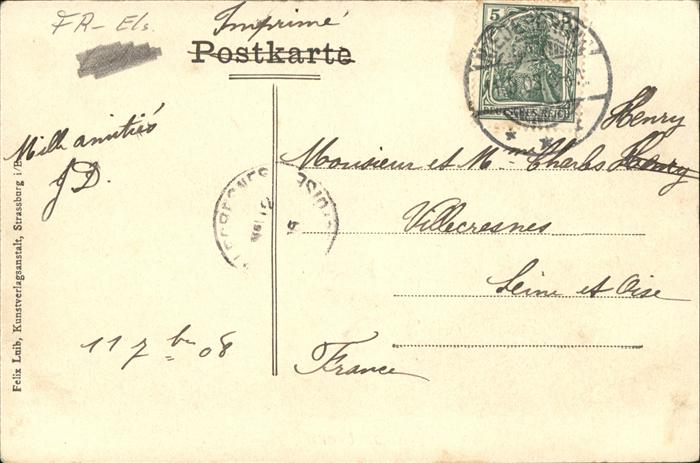 FR- Els.
Imprimé
Postkarte
5
Mille amitiés
J D.
11 7 bre 08
Henry
Monsieur et Mme Charles Henry
Villecresnes
Seine et Oise
France
Felix Luib, Kunstverlagsanstalt, Strassburg i/E